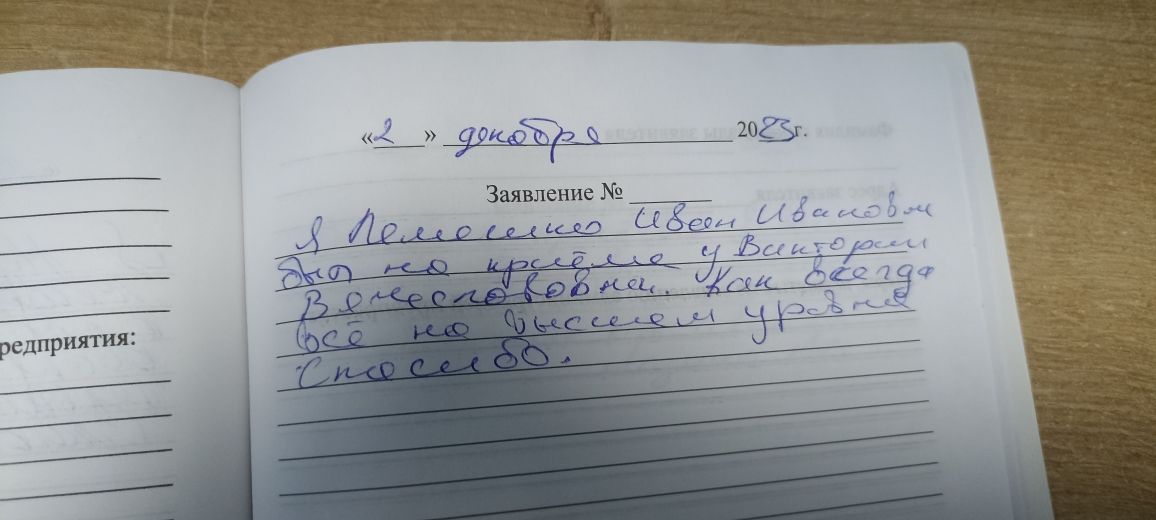 «2» декабря 2023г.
Заявление №
Я Иван Иванович
был на приёме у Виктории
Вячеславовны. Как всегда
всё на высшем уровне
Спасибо.
редприятия: